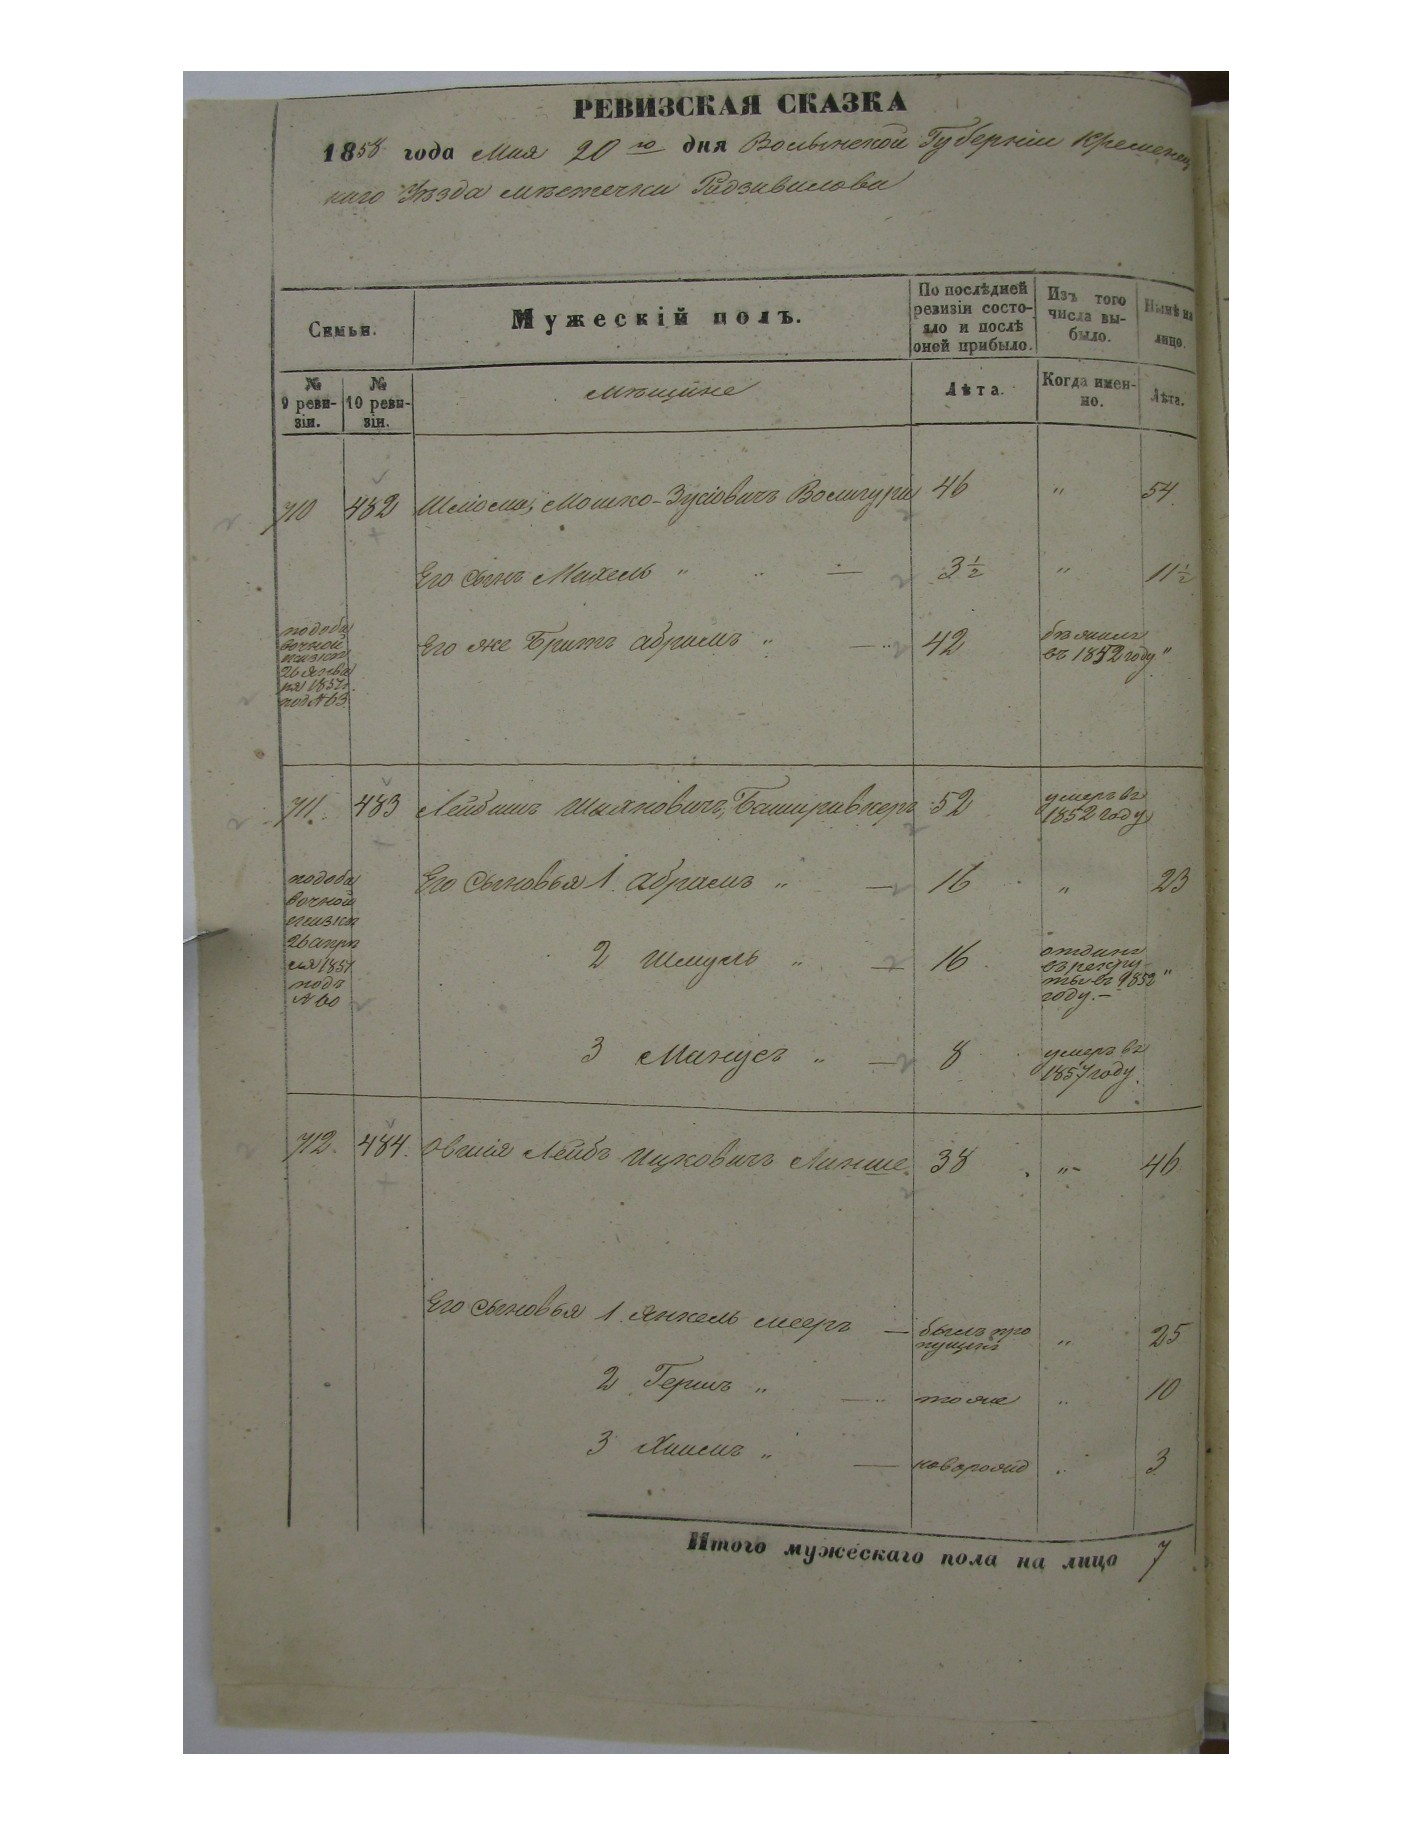 РЕВИЗСКАЯ СКАЗКА
1858 года Мая 20 го дня Волынской Губерніи Кременец
каго Уѣзда мѣстечка Радзивилова
Семьи.
Мужескій полъ.
По послѣдней ревизіи состо-
яло и послѣ
оней прибыло.
Изъ того
числа вы-
было.
Нынѣ на
лицо.
№
9 реви-
зіи.
№
10 реви-
зіи.
мѣщане
Лѣта.
Когда имен-
но.
Лѣта.
710 482 Шліома, Мошко-Зусіовичъ 46 " 54
Его сынъ Михель " " — 3½ " 11½
подоба
вочной
сказки
26 Янва
ря 1851 г.
под № 63
Его же Братъ Абрамъ " — 42 бежалъ
въ 1852 году "
711. 483 Лейбишъ 52 умеръ въ
1852 году
подоба
вочной
сказки
26 апрѣ
ля 1851
подъ
№ 60
Его Сыновья 1. Абрамъ " — 16 " 23
2 Шмуль " — 16 отданъ
въ рекру
ты въ 1852 "
году. —
3 Манусъ " — 8 умеръ въ
1857 году.
712. 484. Овшія Лейбъ Ицковичъ 38 " 46
Его Сыновья 1. Янкель Мееръ — былъ про
пущенъ " 25
2 Гершъ " — тоже " 10
3 Хаимъ " — наворожд " 3
Итого мужескаго пола на лицо 7